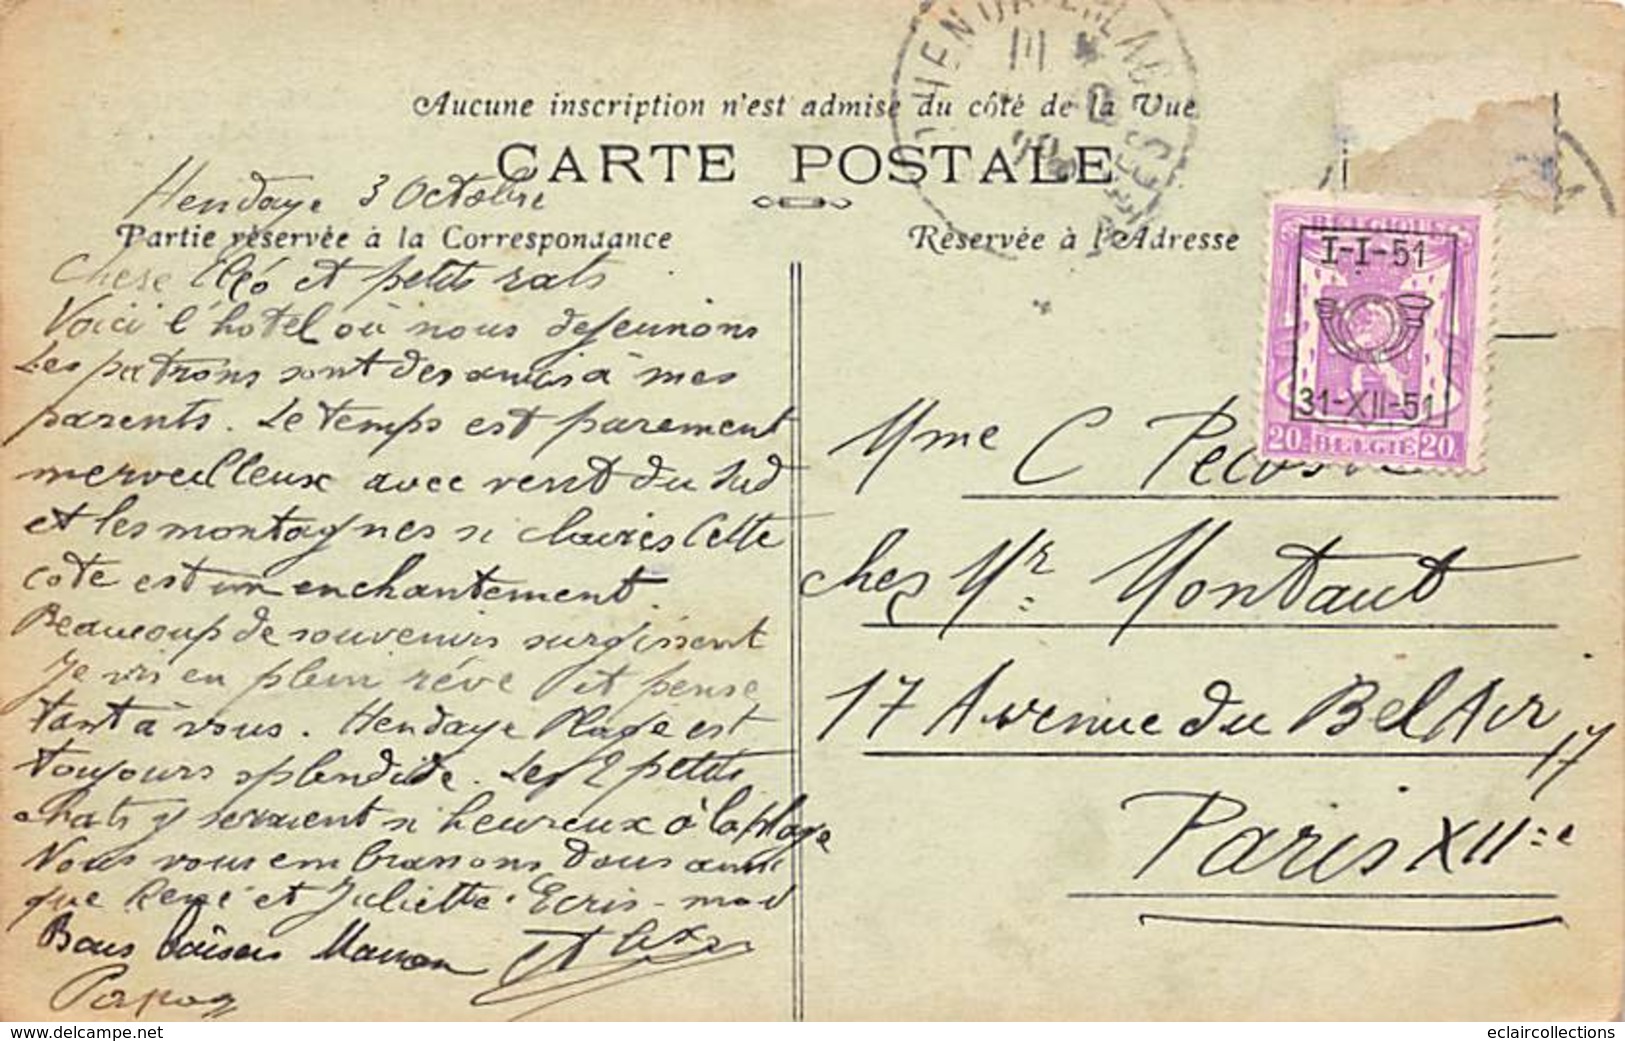 HENDAYE PLAGE
Aucune inscription n'est admise du côté de la Vue
CARTE POSTALE
Hendaye 3 Octobre
Partie réservée à la Correspondance
Réservée à l'Adresse
Chere Cléo et petits rats
Voici l'hotel où nous dejeunons
Les patrons sont des amis à mes
parents. Le temps est purement
merveilleux avec vent du sud
et les montagnes si claires Cette
cote est un enchantement.
Beaucoup de souvenirs surgissent
Je vis en plein rêve et pense
tant à vous. Hendaye Plage est
toujours splendide. Les 2 petits
chats y seraient si heureux à la plage
Nous vous embrassons tous ainsi
que René et Juliette. Ecris-moi
Bons baisers Manon et
BELGIQUE
I-I-51
31-XII-51
20c BELGIË 20c
Mme C
chez Mr Montaut
17 Avenue du Bel Air 17
Paris XIIe
www.delcampe.net
eclaircollections